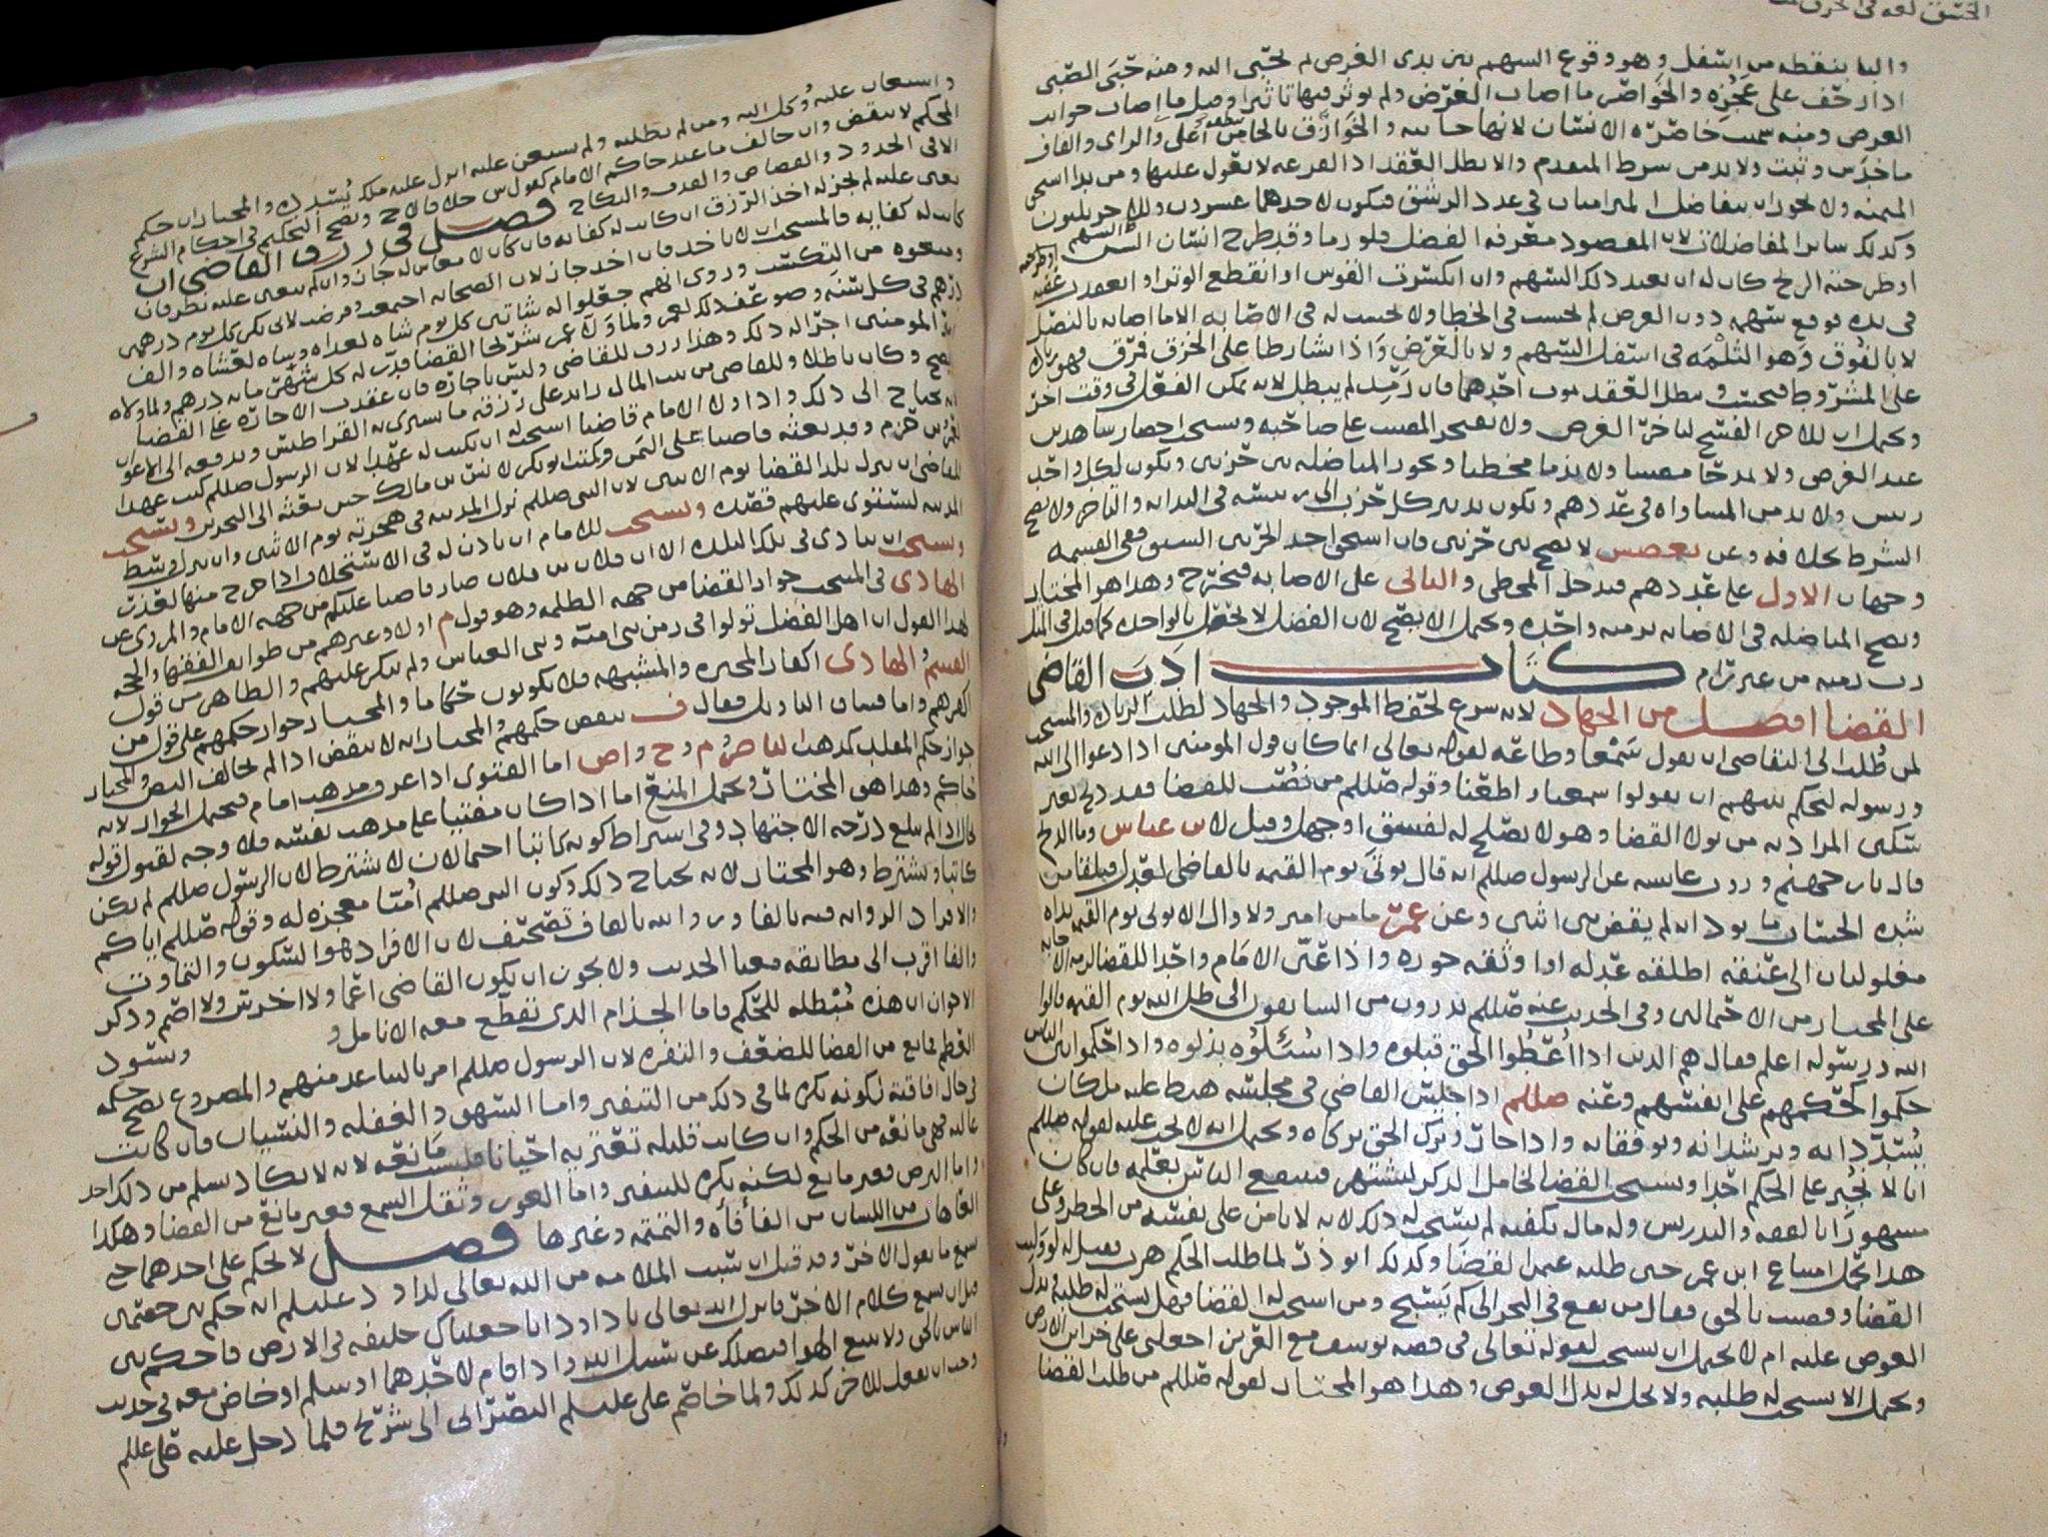 والبا بنقطه من اسفل وهو وقوع السهم بين يدى الغرض ثم يحبى اليه ومنه حبى الصبى
اذا زحف على عجزه والخواصر ما اصاب الغرض ولم يوثر فيها تاثيرا وقيل ما اصاب جوانب
الغرض ومنه سميت خاصرة الانسان لانها جانبيه والخوازق بالخا من اعلى والزاى والقاف
ما خدش وثبت ولا بد من شرط المتقدم والا بطل العقد اذ القرعه لا يعول عليها ومن بدا استحق
الميمنه ولا يجوز ان يتفاضل المتراميان فى عدد الرشق فيكون لاحدهما عشرون وللاخر ثلثون
وكذلك سائر المفاضلات لان المقصود معرفه الفضل فلو رما وقد طرح انسان السهم
او طرحته الريح كان له ان يعيد ذلك السهم وان انكسرت القوس او انقطع الوتر او
فى يده فوقع سهمه دون الغرض لم يحسب فى الخطا ولا يحسب له فى الاصابه الا ما اصابه بالنصل
لا بالفوق وهو الثلمه فى اسفل السهم ولا بالعرض واذا تشارطا على الخزق فمرق فهو زائد
على المشروط فيحسب ويبطل العقد بموت احدهما فان رمد لم يبطل لانه يمكن الفعل فى وقت اخر
ويحتمل ان للاخر الفسخ لتاخر الغرض ولا يمدح المصيب على صاحبه ويستحب احضار شاهدين
عند الغرض ولا يمدحا مصيبا ولا يذما مخطيا ويجوز المناضله بين حزبين ويكون لكل واحد
رئيس ولا بد من المساواه فى عددهم ويكون تدبير كل حزب الى رئيسه فى البدايه والتاخر ولا يصح
الشرط بخلافه وعن بعضهم لا يصح بين حزبين فان استحق احد الحزبين السبق ففى القسمه
وجهان الاول على عددهم فيدخل المخطى والثانى على الاصابه فيخرج وهذا هو المختار
ويصح المناضله فى الاصابه برميه واحده ويحتمل الا يصح لان الفضل لا يحصل بالواحده كما قيل فى المثل
رب رميه من غير رام كتاب ادب القاضى
القضا افضل من الجهاد لانه شرع لحفظ الموجود والجهاد لطلب الزياده والمستحب
لمن طلب الى القاضى ان يقول سمعا وطاعه لقوله تعالى انما كان قول المومنين اذا دعوا الى الله
ورسوله ليحكم بينهم ان يقولوا سمعنا واطعنا وقوله صللم من نصب للقضا فقد ذبح بغير
سكين المراد به من تولا القضا وهو لا يصلح له لفسق او جهل وقيل لابن عباس وما الذبح
قال نار جهنم وروت عايشه عن الرسول صللم انه قال يوتى يوم القيمه بالقاضى العدل فيلقا من
شده الحساب ما يود انه لم يقض بين اثنين وعن عمر ما من امير ولا وال الا يوتى يوم القيمه يداه
مغلولتان الى عنقه اطلقه عدله او اوثقه جوره واذا عين الامام واحدا للقضا لزمه الاجابه
على المختار من الاحتمالين وفى الحديث عنه صللم تدرون من السابقون الى ظل الله يوم القيمه قالوا
الله ورسوله اعلم فقال هم الذين اذا اعطوا الحق قبلوه واذا سئلوه بذلوه واذا حكموا بين الناس
حكموا كحكمهم على انفسهم وعنه صللم اذا جلس القاضى فى مجلسه هبط عليه ملكان
يسددانه ويرشدانه ويوفقانه واذا جار وترك الحق تركاه ويحتمل انه لا يجب عليه لقوله صللم
انا لا نجبر على الحكم احدا ويستحب القضا لخامل الذكر ليشتهر فينتفع الناس بعلمه فان كان
مشهورا بالفقه والتدريس وله مال يكفيه لم يستحب له ذلك لانه لا يامن على نفسه من الخطر وعلى
هذا يحمل امتناع ابن عمر حين طلبه عثمن القضا وكذلك ابو ذر لما طلب الحكم هرب فقيل له لو وليت
القضا وقضيت بالحق فقال من يقع فى البحر الى كم يسبح ومن استحب له القضا فهل يستحب له طلبه وبذل
العوض عليه ام لا يحتمل ان يستحب لقوله تعالى فى قصه يوسف مع العزيز اجعلنى على خزاين الارض
ويحتمل الا يستحب له طلبه ولا يحل له بذل العوض وهذا هو المختار لقوله صللم من طلب القضا
واستعان عليه وكل اليه ومن لم يطلبه ولم يستعن عليه انزل عليه ملك يسدده والمختار ان حكم
المحكم لا ينقض وان خالف ما عند حاكم الامام كقول ش خلاف لاح ويصح التحكيم فى احكام الشرع
الا فى الحدود والقصاص والقذف والنكاح فصل فى رزق القاضى ان
تعين عليه لم يجز له اخذ الرزق ان كانت له كفايه فان كان لا معاش له جاز وان لم يتعين عليه نظر فان
كانت له كفايه فالمستحب ان لا ياخذ فان اخذ جاز لان الصحابه اجمعت وفرضت لابى بكر كل يوم درهمين
ومنعوه من التكسب وروى انهم جعلوا له شاتين كل يوم شاه لغداه وشاه لعشاه والف
درهم فى كل سنه وصوعف ذلك لعمر ولما ولا عمر شريحا القضا فرتب له كل شهر مايه درهم ولما ولاه
امير المومنين اجرا له ذلك وهذا رزق للقاضى وليس باجاره فان عقدت الاجاره على القضا
لم يصح وكان باطلا وللقاضى من بيت المال زايد على رزقه ما يشترى به القراطيس ويدفعه الى الاعوان
لانه يحتاج الى ذلك واذا ولا الامام قاضيا استحب له ان يكتب له عهدا لان الرسول صللم كتب عهدا
لعمرو بن حزم وقد بعثه قاضيا على اليمن وكتب ابو بكر لانس بن مالك حين بعثه الى البحرين ويستحب
للقاضى ان ينزل بلد القضا يوم الاثنين لان النبى صللم نزل المدينه فى هجرته يوم الاثنين وان ينزل وسط
المدينه ليستوى عليهم قصده ويستحب للامام ان ياذن له فى الاستخلاف اذا خرج منها لعذر
ويستحب ان ينادى فى تلك البلده الا ان فلان بن فلان صار قاضيا عليكم من جهه الامام والمروى عن
الهادى فى المنتخب جواز القضا من جهه الظلمه وهو قول م اولا وغيرهم من طوايف الفقها والحجه
لهذا القول ان اهل الفضل تولوا فى زمن بنى اميه وبنى العباس ولم ينكر عليهم والظاهر من قول
القسم والهادى اكفار المجبره والمشبهه فلا يكونون حكاما والمختار جواز حكمهم على قول من
لم يكفرهم واما فساق التاويل فقال ف ينقض حكمهم والمختار انه لا ينقض اذا لم يخالف النص والمختار
جواز حكم المقلد كمذهب الناصر وم وح واص اما الفتوى اذا عرف مذهب امام فيحتمل الجواز لانه
حاكم وهذا هو المختار ويحتمل المنع اما اذا كان مفتيا على مذهب نفسه فلا وجه لقبول قوله
حال اذا لم يبلغ درجه الاجتهاد وفى اشتراط كونه كاتبا احتمالان لا يشترط لان الرسول صللم لم يكن
كاتبا ويشترط وهو المختار لانه يحتاج ذلك وكون النبى صللم اميا معجزه له وقوله صللم اياكم
والاقراد الروايه فيه بالقاف وروايه بالفا تصحيف لان الاقراد هو السكون والتماوت
والفا اقرب الى مطابقه معنا الحديث ولا يجوز ان يكون القاضى اعما ولا اخرس ولا اصم وذكر
الاخوان ان هذه مبطله للحكم فاما الجذام الذى تقطع معه الانامل و ويسود
القطم مانع من القضا للضعف والنفره لان الرسول صللم امر بالتباعد منهم والمصروع يصح حكمه
فى حال افاقته لكونه يكره لما فى ذلك من التنفير واما السهو والغفله والنسيان فان كانت
غالبه فهى مانعه من الحكم وان كانت قليله تعتريه احيانا فليست مانعه لانه لا يكاد يسلم من ذلك احد
واما البرص فغير مانع لكنه يكره للتنفير واما العور وثقل السمع فغير مانع من القضا وهكذا
العاهات من اللسان من الفأفأه والتمتمه وغيرها فصل لا يحكم على احدهما حتى
يسمع ما يقول الاخر وقد قيل ان سبب الملامه من الله تعالى لداود عليلم انه حكم بين خصمين
قبل ان يسمع كلام الاخر فانزل الله تعالى يا داود انا جعلناك خليفه فى الارض فاحكم بين
الناس بالحق ولا تتبع الهوا فيضلك عن سبيل الله واذا قام لاحدهما او سلم او خاض معه فى حديث
وجب ان يفعل للاخر كذلك ولما خاصم على عليلم النصرانى الى شريح فلما دخل عليه قام على عللم